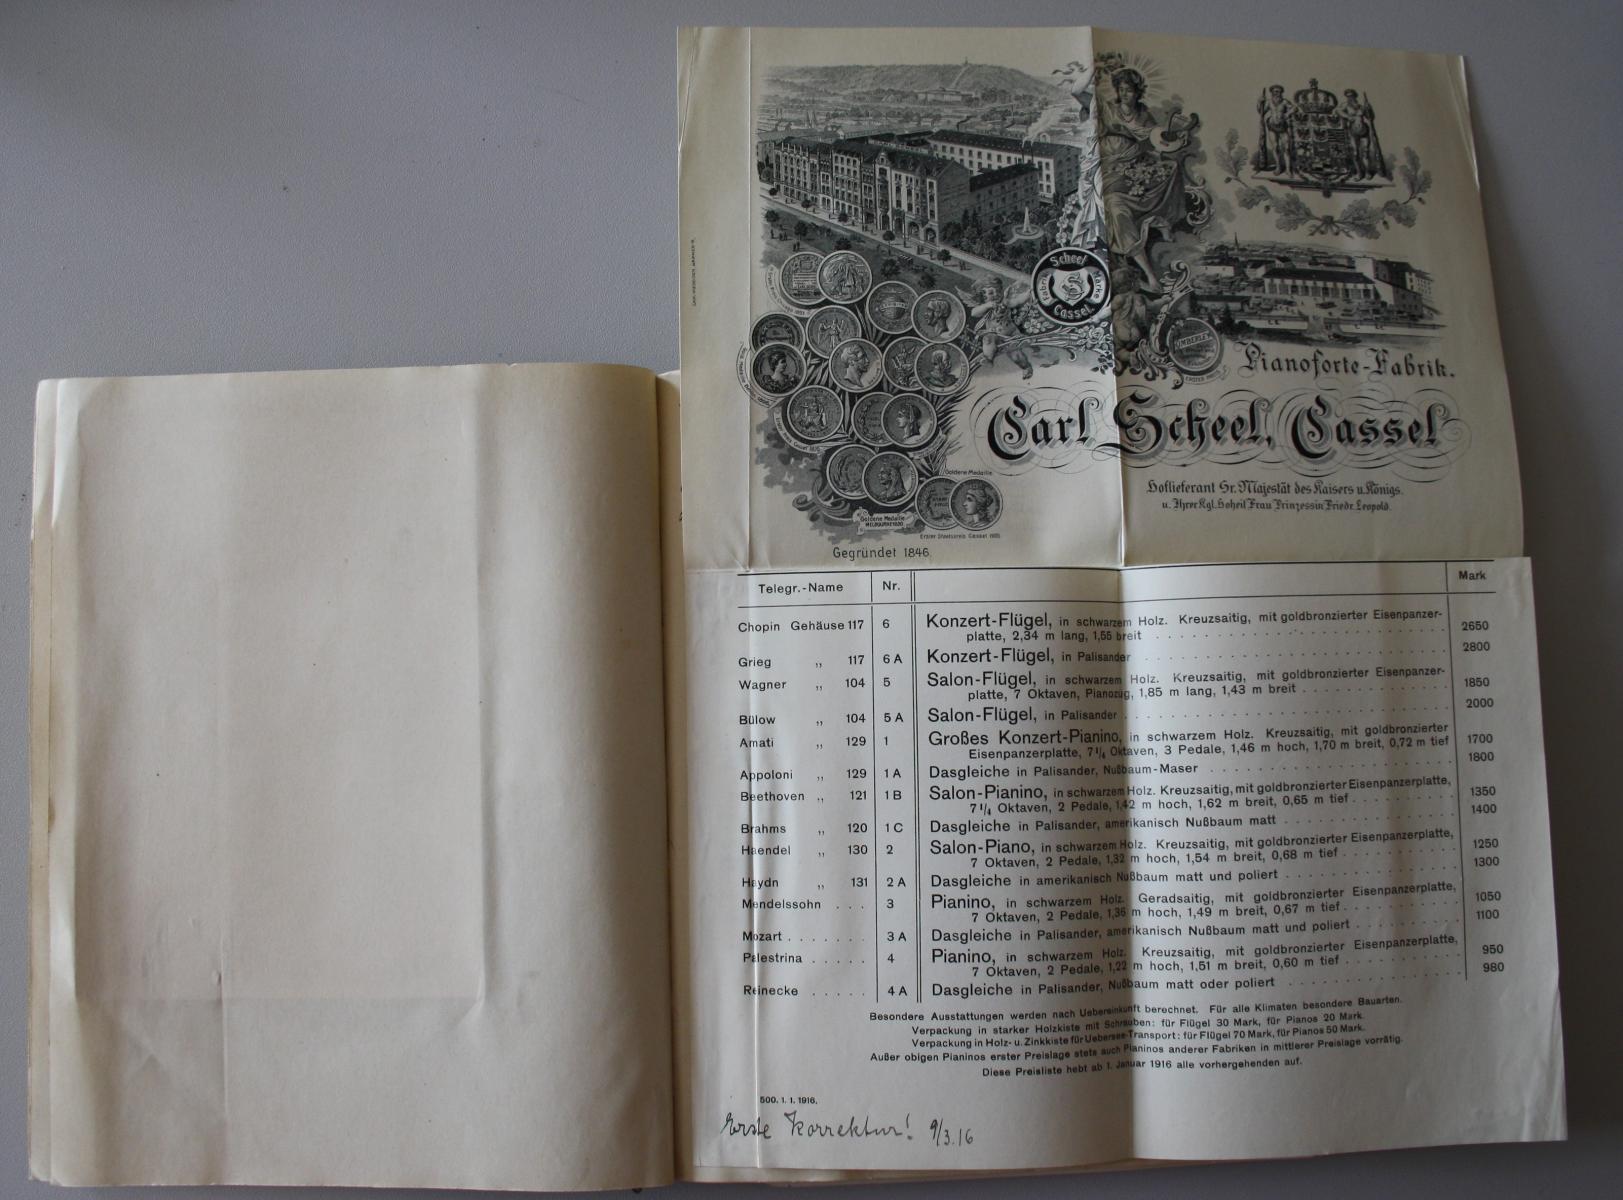 Scheel
Fabrik Marke
S
Cassel.
KIMBERLEY
ERSTER PREIS
Pianoforte-Fabrik.
Carl Scheel, Cassel
Hoflieferant Sr. Majestät des Kaisers u. Königs.
u. Ihrer Kgl. Hoheit Frau Prinzessin Friedr. Leopold.
Goldene Medaille
Goldene Medaille
MELBOURNE 1880
Erster Staatspreis Cassel 1905.
Gegründet 1846.
Telegr.-Name Nr. Mark
Chopin Gehäuse 117 6 Konzert-Flügel, in schwarzem Holz. Kreuzsaitig, mit goldbronzierter Eisenpanzer-
platte, 2,34 m lang, 1,55 breit . . . 2650
Grieg „ 117 6 A Konzert-Flügel, in Palisander . . . 2800
Wagner „ 104 5 Salon-Flügel, in schwarzem Holz. Kreuzsaitig, mit goldbronzierter Eisenpanzer-
platte, 7 Oktaven, Pianozug, 1,85 m lang, 1,43 m breit . . . 1850
Bülow „ 104 5 A Salon-Flügel, in Palisander . . . 2000
Amati „ 129 1 Großes Konzert-Pianino, in schwarzem Holz. Kreuzsaitig, mit goldbronzierter
Eisenpanzerplatte, 7 1/4 Oktaven, 3 Pedale, 1,46 m hoch, 1,70 m breit, 0,72 m tief 1700
Appoloni „ 129 1 A Dasgleiche in Palisander, Nußbaum-Maser . . . 1800
Beethoven „ 121 1 B Salon-Pianino, in schwarzem Holz. Kreuzsaitig, mit goldbronzierter Eisenpanzerplatte,
7 1/4 Oktaven, 2 Pedale, 1,42 m hoch, 1,62 m breit, 0,65 m tief . . . 1350
Brahms „ 120 1 C Dasgleiche in Palisander, amerikanisch Nußbaum matt . . . 1400
Haendel „ 130 2 Salon-Piano, in schwarzem Holz. Kreuzsaitig, mit goldbronzierter Eisenpanzerplatte,
7 Oktaven, 2 Pedale, 1,32 m hoch, 1,54 m breit, 0,68 m tief . . . 1250
Haydn „ 131 2 A Dasgleiche in amerikanisch Nußbaum matt und poliert . . . 1300
Mendelssohn . . . 3 Pianino, in schwarzem Holz. Geradsaitig, mit goldbronzierter Eisenpanzerplatte,
7 Oktaven, 2 Pedale, 1,36 m hoch, 1,49 m breit, 0,67 m tief . . . 1050
Mozart . . . 3 A Dasgleiche in Palisander, amerikanisch Nußbaum matt und poliert . . . 1100
Palestrina . . . 4 Pianino, in schwarzem Holz. Kreuzsaitig, mit goldbronzierter Eisenpanzerplatte,
7 Oktaven, 2 Pedale, 1,22 m hoch, 1,51 m breit, 0,60 m tief . . . 950
Reinecke . . . 4 A Dasgleiche in Palisander, Nußbaum matt oder poliert . . . 980
Besondere Ausstattungen werden nach Uebereinkunft berechnet. Für alle Klimaten besondere Bauarten.
Verpackung in starker Holzkiste mit Schrauben: für Flügel 30 Mark, für Pianos 20 Mark.
Verpackung in Holz- u. Zinkkiste für Uebersee-Transport: für Flügel 70 Mark, für Pianos 50 Mark.
Außer obigen Pianinos erster Preislage stets auch Pianinos anderer Fabriken in mittlerer Preislage vorrätig.
Diese Preisliste hebt ab 1. Januar 1916 alle vorhergehenden auf.
500. 1. 1. 1916.
Erste Korrektur! 9/3.16